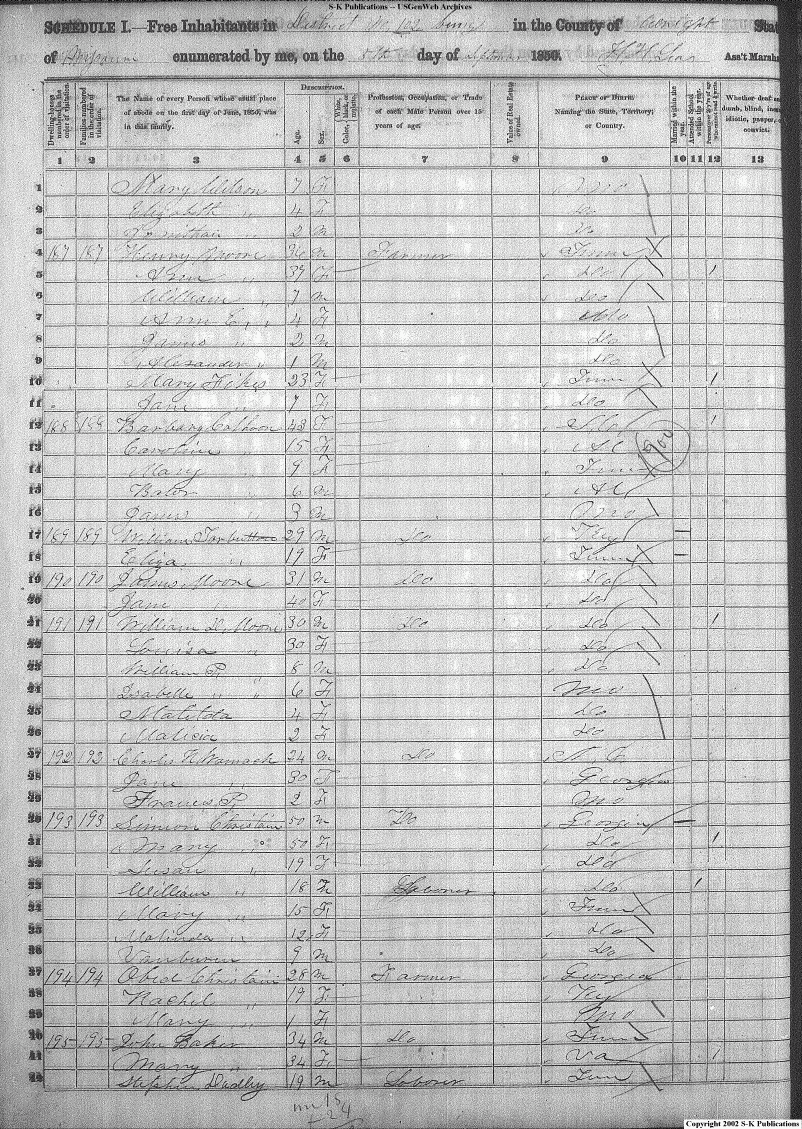 S-K Publications -- USGenWeb Archives
SCHEDULE I.—Free Inhabitants in District No 102 in the County of State
of Missouri enumerated by me, on the 5th day of 1850. Ass't Marsh
DESCRIPTION.
Dwelling-houses numbered in the order of visitation.
Families numbered in the order of visitation.
The Name of every Person whose usual place of abode on the first day of June, 1850, was in this family.
Age.
Sex.
White, Color, black, or mulatto.
Profession, Occupation, or Trade of each Male Person over 15 years of age.
Value of Real Estate owned.
PLACE OF BIRTH. Naming the State, Territory, or Country.
Married within the year.
Attended School within the year.
Whether deaf and dumb, blind, insane, idiotic, pauper, or convict.
1 2 3 4 5 6 7 8 9 10 11 12 13
1 Mary Wilson 7 F Mo
2 Elizabeth " 4 F Do
3 " 2 m Do
4 187 187 Henry Moore 36 m Farmer Tenn
5 " 39 F Do 1
6 William " 7 m Do
7 Ann E. " 4 F Mo
8 James " 2 m Do
9 Alexander " 1 m Do
10 Mary Hikes 23 F Tenn 1
11 Jane " 7 F Do
12 188 188 Barbary Calhoon 43 F 1
13 Caroline " 15 F Al
14 Mary " 9 F Tenn
15 " 6 m Al
16 James " 3 m Mo
17 189 189 William 29 m Do Ky
18 Eliza " 19 F Tenn
19 190 190 James Moore 31 m Do Do
20 Jane " 40 F Do
21 191 191 William D. Moore 30 m Do Do 1
22 Louisa " 30 F Do
23 William P. " 8 m Do
24 Isabelle " " 6 F Mo
25 Matilda 4 F Do
26 Malicia " 2 F Do
27 192 192 Charles N Womack 24 m Do N C
28 Jane 30 F Georgia
29 Francis P. 2 F Mo
30 193 193 Simeon Christain 50 m Do Georgia
31 Mary " 50 F Do 1
32 Susan " 19 F Do
33 William " 18 m Laborer Do 1
34 Mary " 15 F Tenn
35 Malinda " 12 F Do
36 Vanburen 9 m Do
37 194 194 Obed Christain 28 m Farmer Georgia
38 Rachel " 19 F Ky
39 Mary " 1 F Mo
40 195 195 John Baker 34 m Do Tenn
41 Mary " 34 F Va 1
42 Stephen Dudley 19 m Laborer Tenn
Copyright 2002 S-K Publications